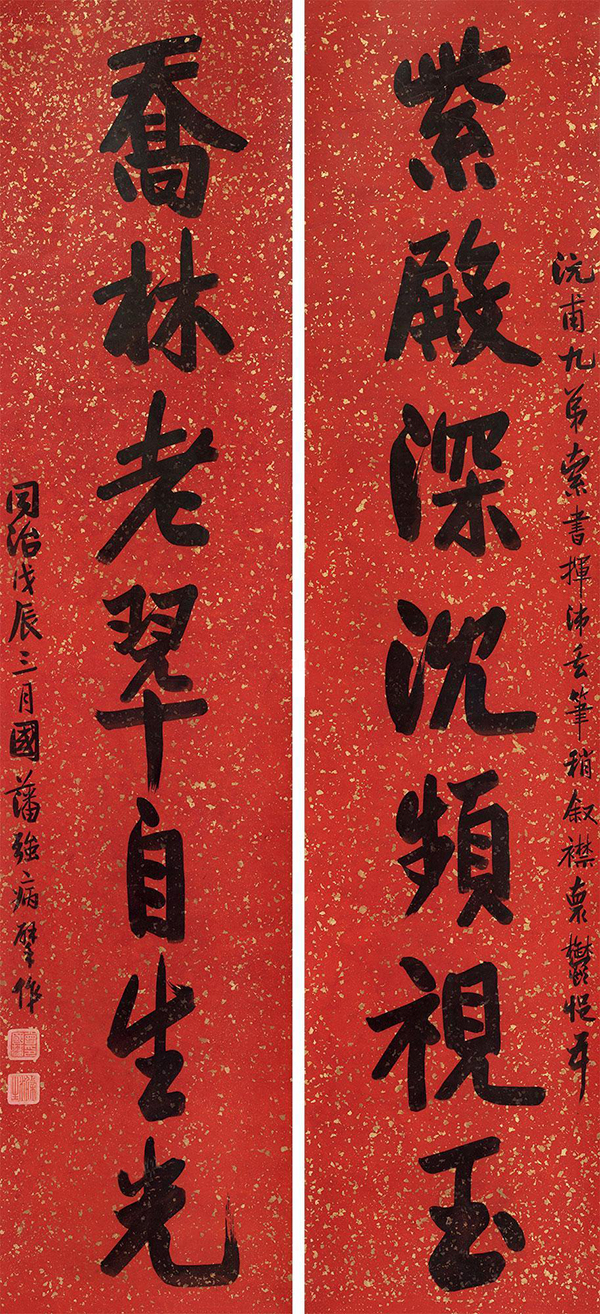 沅甫九弟索書揮筆稍叙襟鬱悒
紫殿深沈頻視玉
喬林老翠自生光
同治戊辰三月國藩強病作